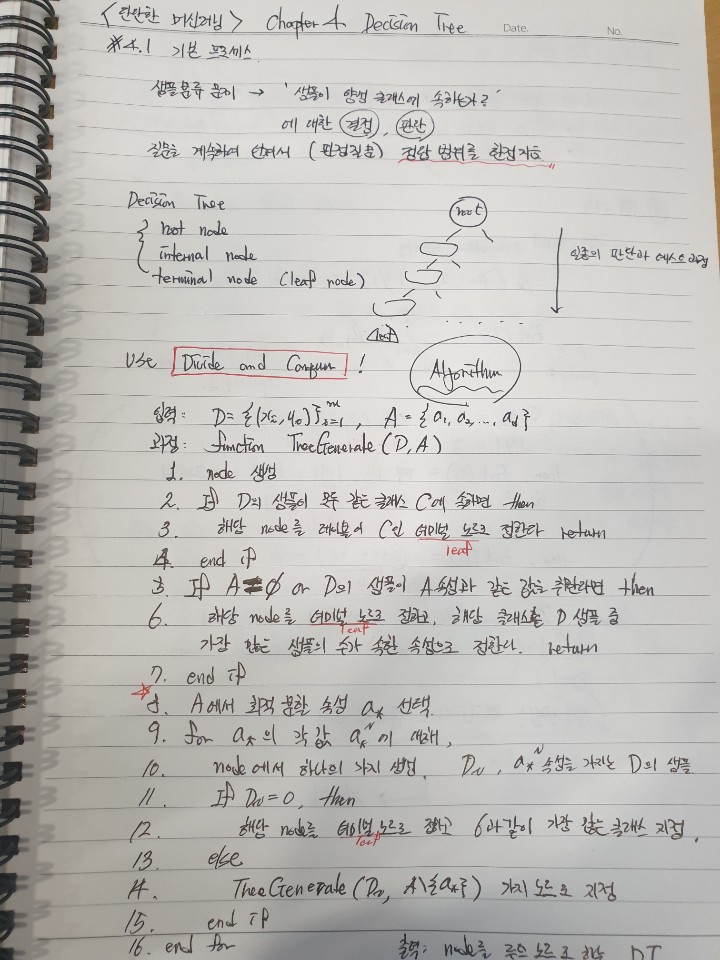 <단단한 머신러닝> Chapter 4. Decision Tree Date. No.
※4.1 기본 프로세스
샘플 분류 문제 → '샘플이 양성 클래스에 속하는가?'
에 대한 결정, 판단
질문을 계속하여 던져서 (판정질문) 정답 범위를 한정지음
Decision Tree
root node
internal node
terminal node (leaf node)
root
일종의 판단과 테스트 과정
leaf
Use Divide and Conquer !
Algorithm
입력: D = {(xᵢ, yᵢ)}ᵐᵢ₌₁, A = {a₁, a₂, ..., a_d}
과정: function TreeGenerate (D, A)
1. node 생성
2. If D의 샘플이 모두 같은 클래스 C에 속하면 then
3. 해당 node를 레이블이 C인 터미널 노드로 정한다 return
leaf
4. end if
5. If A = ∅ or D의 샘플이 A 속성과 같은 값을 취한다면 then
6. 해당 node를 터미널 노드로 정하고, 해당 클래스는 D 샘플 중
leaf
가장 많은 샘플의 수가 속한 속성으로 정한다. return
7. end if
8. A에서 최적 분할 속성 a* 선택.
9. for a* 의 각 값 a*ᵛ에 대해,
10. node에서 하나의 가지 생성. Dᵥ, a*ᵛ 속성을 가지는 D의 샘플
11. If Dᵥ = 0, then
12. 해당 node를 터미널 노드로 정하고 6과 같이 가장 많은 클래스 지정.
leaf
13. else
14. TreeGenerate (Dᵥ, A\{a*}) 가지 노드로 지정
15. end if
16. end for
출력: node를 루트 노드로 하는 DT